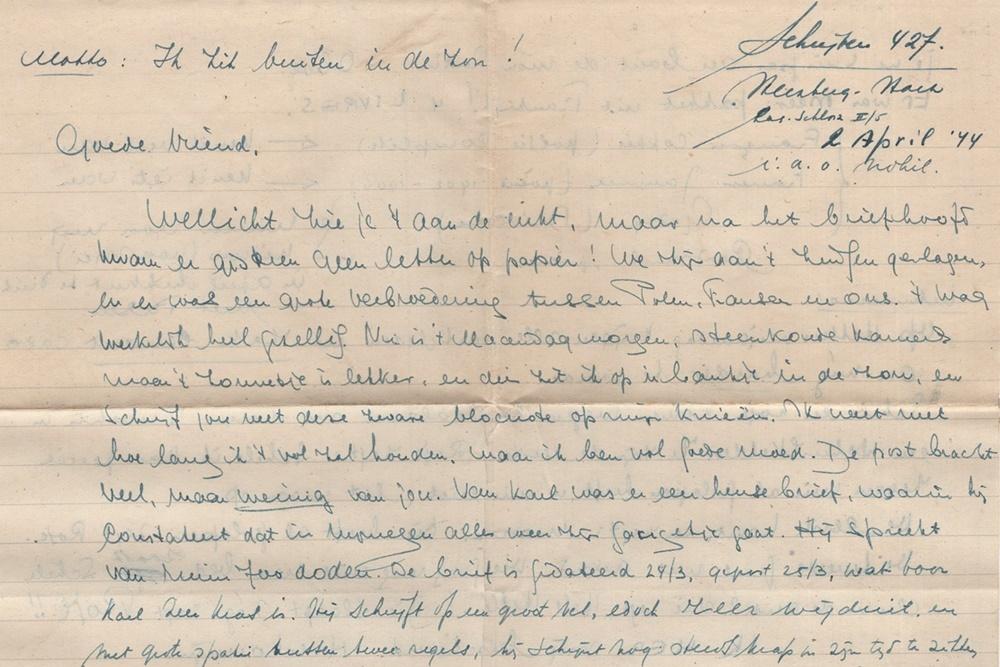 Motto: Ik zit buiten in de zon!
Schuyten 427.
2 April '44
i. a. o. Mobil.
Goede Vriend,
Wellicht zie je 't aan de inkt, maar na het briefhoofd
kwam er gisteren geen letter op papier! We zijn aan 't zuipen geslagen,
en er was een grote verbroedering tussen Polen, Fransen en ons. 't was
werkelijk heel gezellig. Nu is 't Maandagmorgen, steenkoude kamers
maar 't zonnetje is lekker, en dus zit ik op 'n bankje in de zon, en
schrijf jou met deze zware blocnote op mijn knieën. Ik weet niet
hoe lang ik 't vol zal houden, maar ik ben vol goede moed. De post bracht
veel, maar weinig van jou. Van Karel was er een heuse brief, waarin hij
constateert dat in Nijmegen alles weer zijn gangetje gaat. Hij spreekt
van ruim 700 doden. De brief is gedateerd 24/3, gepost 25/3, wat voor
Karel zeer kras is. Hij schrijft op een groot vel, edoch zeer wijduit en
met grote spatie tussen twee regels, hij schijnt nog steeds krap in zijn tijd te zitten